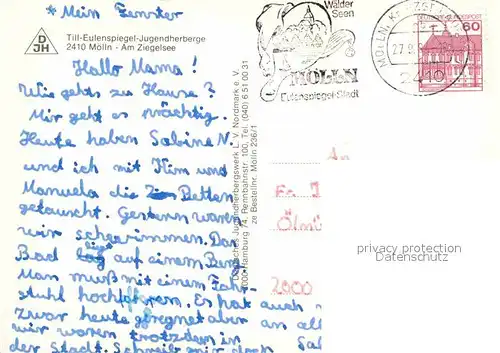 * Mein Fenster
DJH
Till-Eulenspiegel-Jugendherberge
2410 Mölln - Am Ziegelsee
Hallo Mama!
Wie gehts zu Hause?
Mir geht es prächtig.
Heute haben Sabine N.
und ich mit Kim und
Manuela die Betten
getauscht. Gestern waren
wir schwimmen. Das
Bad liegt auf einem Berg
Man muß mit einem Fahr-
stuhl hochfahren. Es hat auch
zwar heute geregnet aber an all
wir waren trotzdem in Sal
der Stadt. Schreib mir doch
Deutsches Jugendherbergswerk L. V. Nordmark e. V.
2000 Hamburg 74, Rennbahnstr. 100, Tel. (040) 6 51 00 31
ze Bestellnr. Mölln 236/1
Wälder
Seen
MÖLLN
Eulenspiegel-Stadt
MÖLLN
27.9
2410
60
An
Fr.
Ölmü
2000
privacy protection
Datenschutz